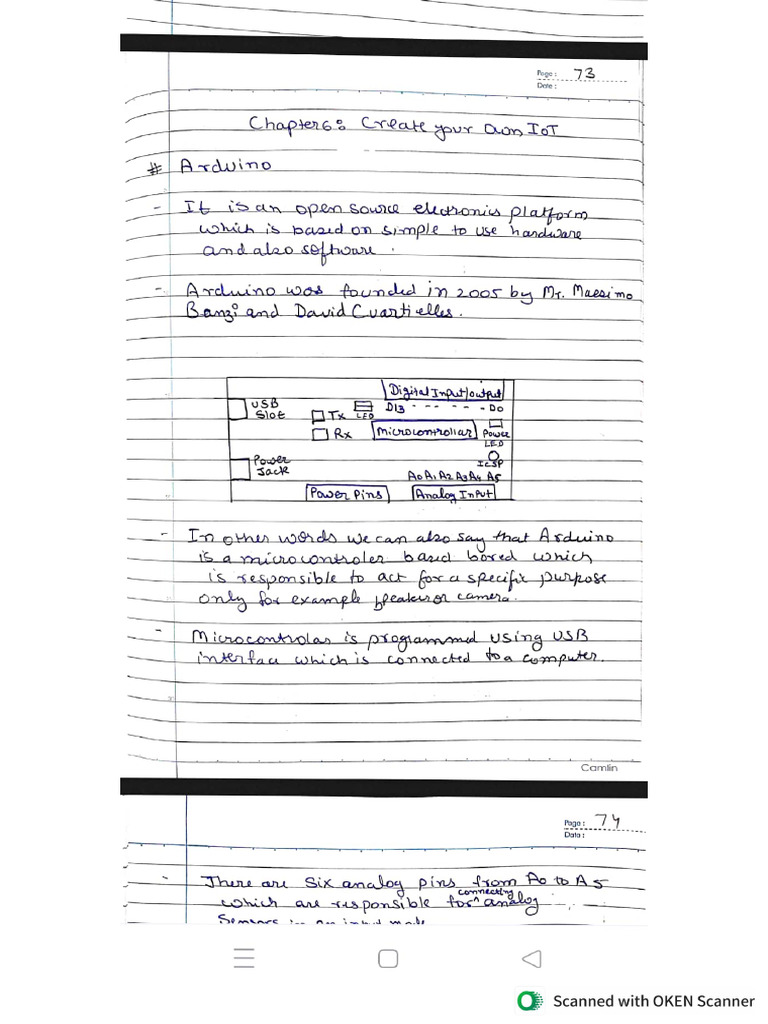 Page : 73
Date :
Chapter6: Create your Own IoT
# Arduino
- It is an open source electronics platform
which is based on simple to use hardware
and also software.
- Arduino was founded in 2005 by Mr. Massimo
Banzi and David Cuartielles.
Digital Input/output
USB
Slot
Tx
LED
D13 - - - - - - D0
Rx
Microcontrollar
Power
LED
ICSP
Power
Jack
A0 A1 A2 A3 A4 A5
Power Pins
Analog Input
- In other words we can also say that Arduino
is a microcontroler based bored which
is responsible to act for a specific purpose
only for example speaker or camera.
- Microcontrolas is programmed using USB
interface which is connected to a computer.
Camlin
Page : 74
Date :
- There are six analog pins from A0 to A5
which are responsible for connecting analog
Sensors in an input mode
Scanned with OKEN Scanner